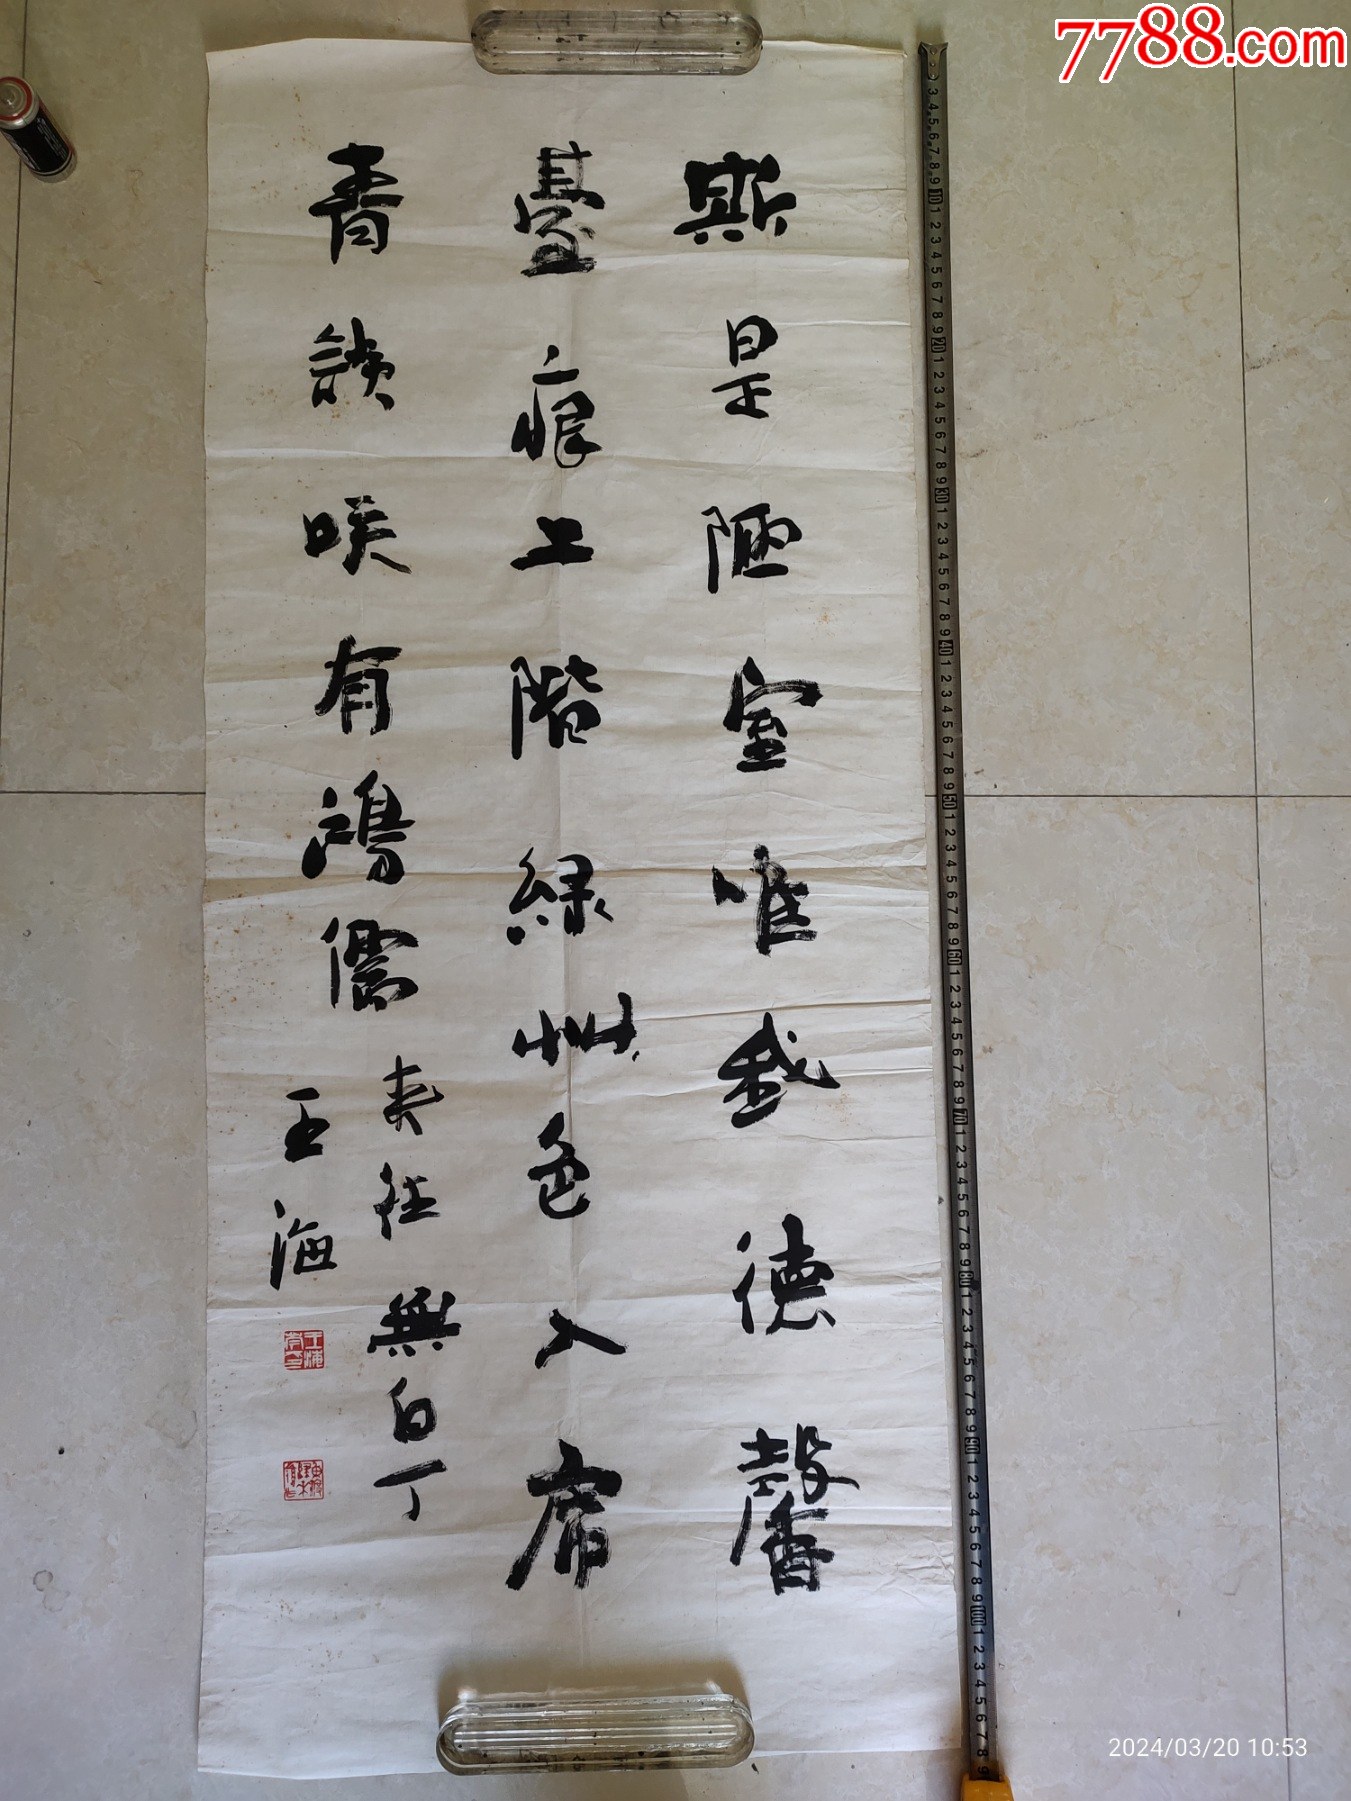 7788.com
斯是陋室唯我德馨
臺痕上階綠艸色入席
青談咲有鴻儒
来往無白丁
王海
2024/03/20 10:53